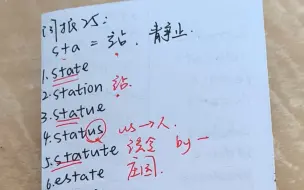 词根25:
sta = 站. 静止.
1. state
2. station 站.
3. statue
4. status us→人.
5. statute 法令 by一
6. estate 庄园.